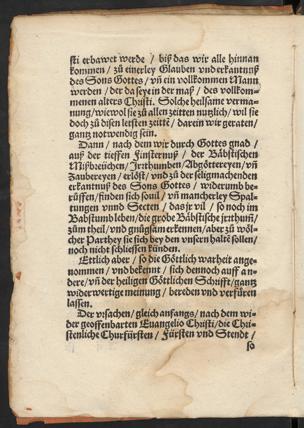 sti erbawet werde / biß das wir alle hinnan
kommen / zů einerley Glauben vnd erkantnuß
des Sons Gottes / vñ ein volkommen Mann
werden / der da sey in der maß / des vollkom-
menen alters Christi. Solche heilsame verma-
nung / wiewol sie zů allen zeitten nutzlich / wil sie
doch zů disen letsten zeittẽ / darein wir geraten /
gantz notwendig sein.
Dann / nach dem wir durch Gottes gnad /
auß der tieffen Finsternuß / der Bäbstischen
Mißbreüchen / Irrthumben / Abgöttereyen / vñ
Zaubereyen / erlößt / vnd zů der seligmachenden
erkantnuß des Sons Gottes / widerumb be-
růffen / finden sich souil / vñ mancherley Spal-
tungen vnnd Secten / das jr vil / so noch im
Babstumb leben / die grobe Bäbstische jrrthum̃ /
zům theil / vnd gnůgsam erkennen / aber zů wöl-
cher Parthey sie sich bey den vnsern halte sollen /
noch nicht schliessen künden.
Ettlich aber / so die Göttlich warheit ange-
nommen / vnd bekennt / sich dennoch auff an-
dere / vñ der heiligen Göttlichen Schrifft / gantz
widerwertige meinung / bereden vnd verfüren
lassen.
Der vrsachen / gleich anfangs / nach dem wi-
der geoffenbarten Euangelio Christi / die Chri-
stenliche Churfürsten / Fürsten vnd Stendt /
so